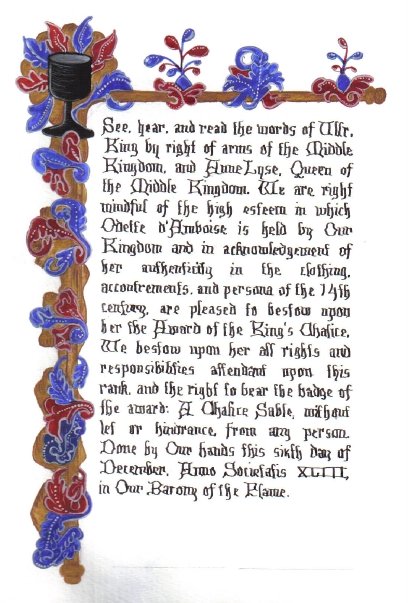 See, hear, and read the words of Ulfr,
King by right of arms of the Middle
Kingdom, and AnneLyse, Queen of
the Middle Kingdom. We are right
mindful of the high esteem in which
Odette d'Amboise is held by Our
Kingdom and in acknowledgement of
her authenticity in the clothing,
accoutrements, and persona of the 14th
century, are pleased to bestow upon
her the Award of the King's Chalice.
We bestow upon her all rights and
responsibilities attendant upon this
rank, and the right to bear the badge of
the award: A Chalice Sable, without
let or hindrance, from any person.
Done by Our hands this sixth day of
December, Anno Societatis XLIII,
in Our Barony of the Flame.